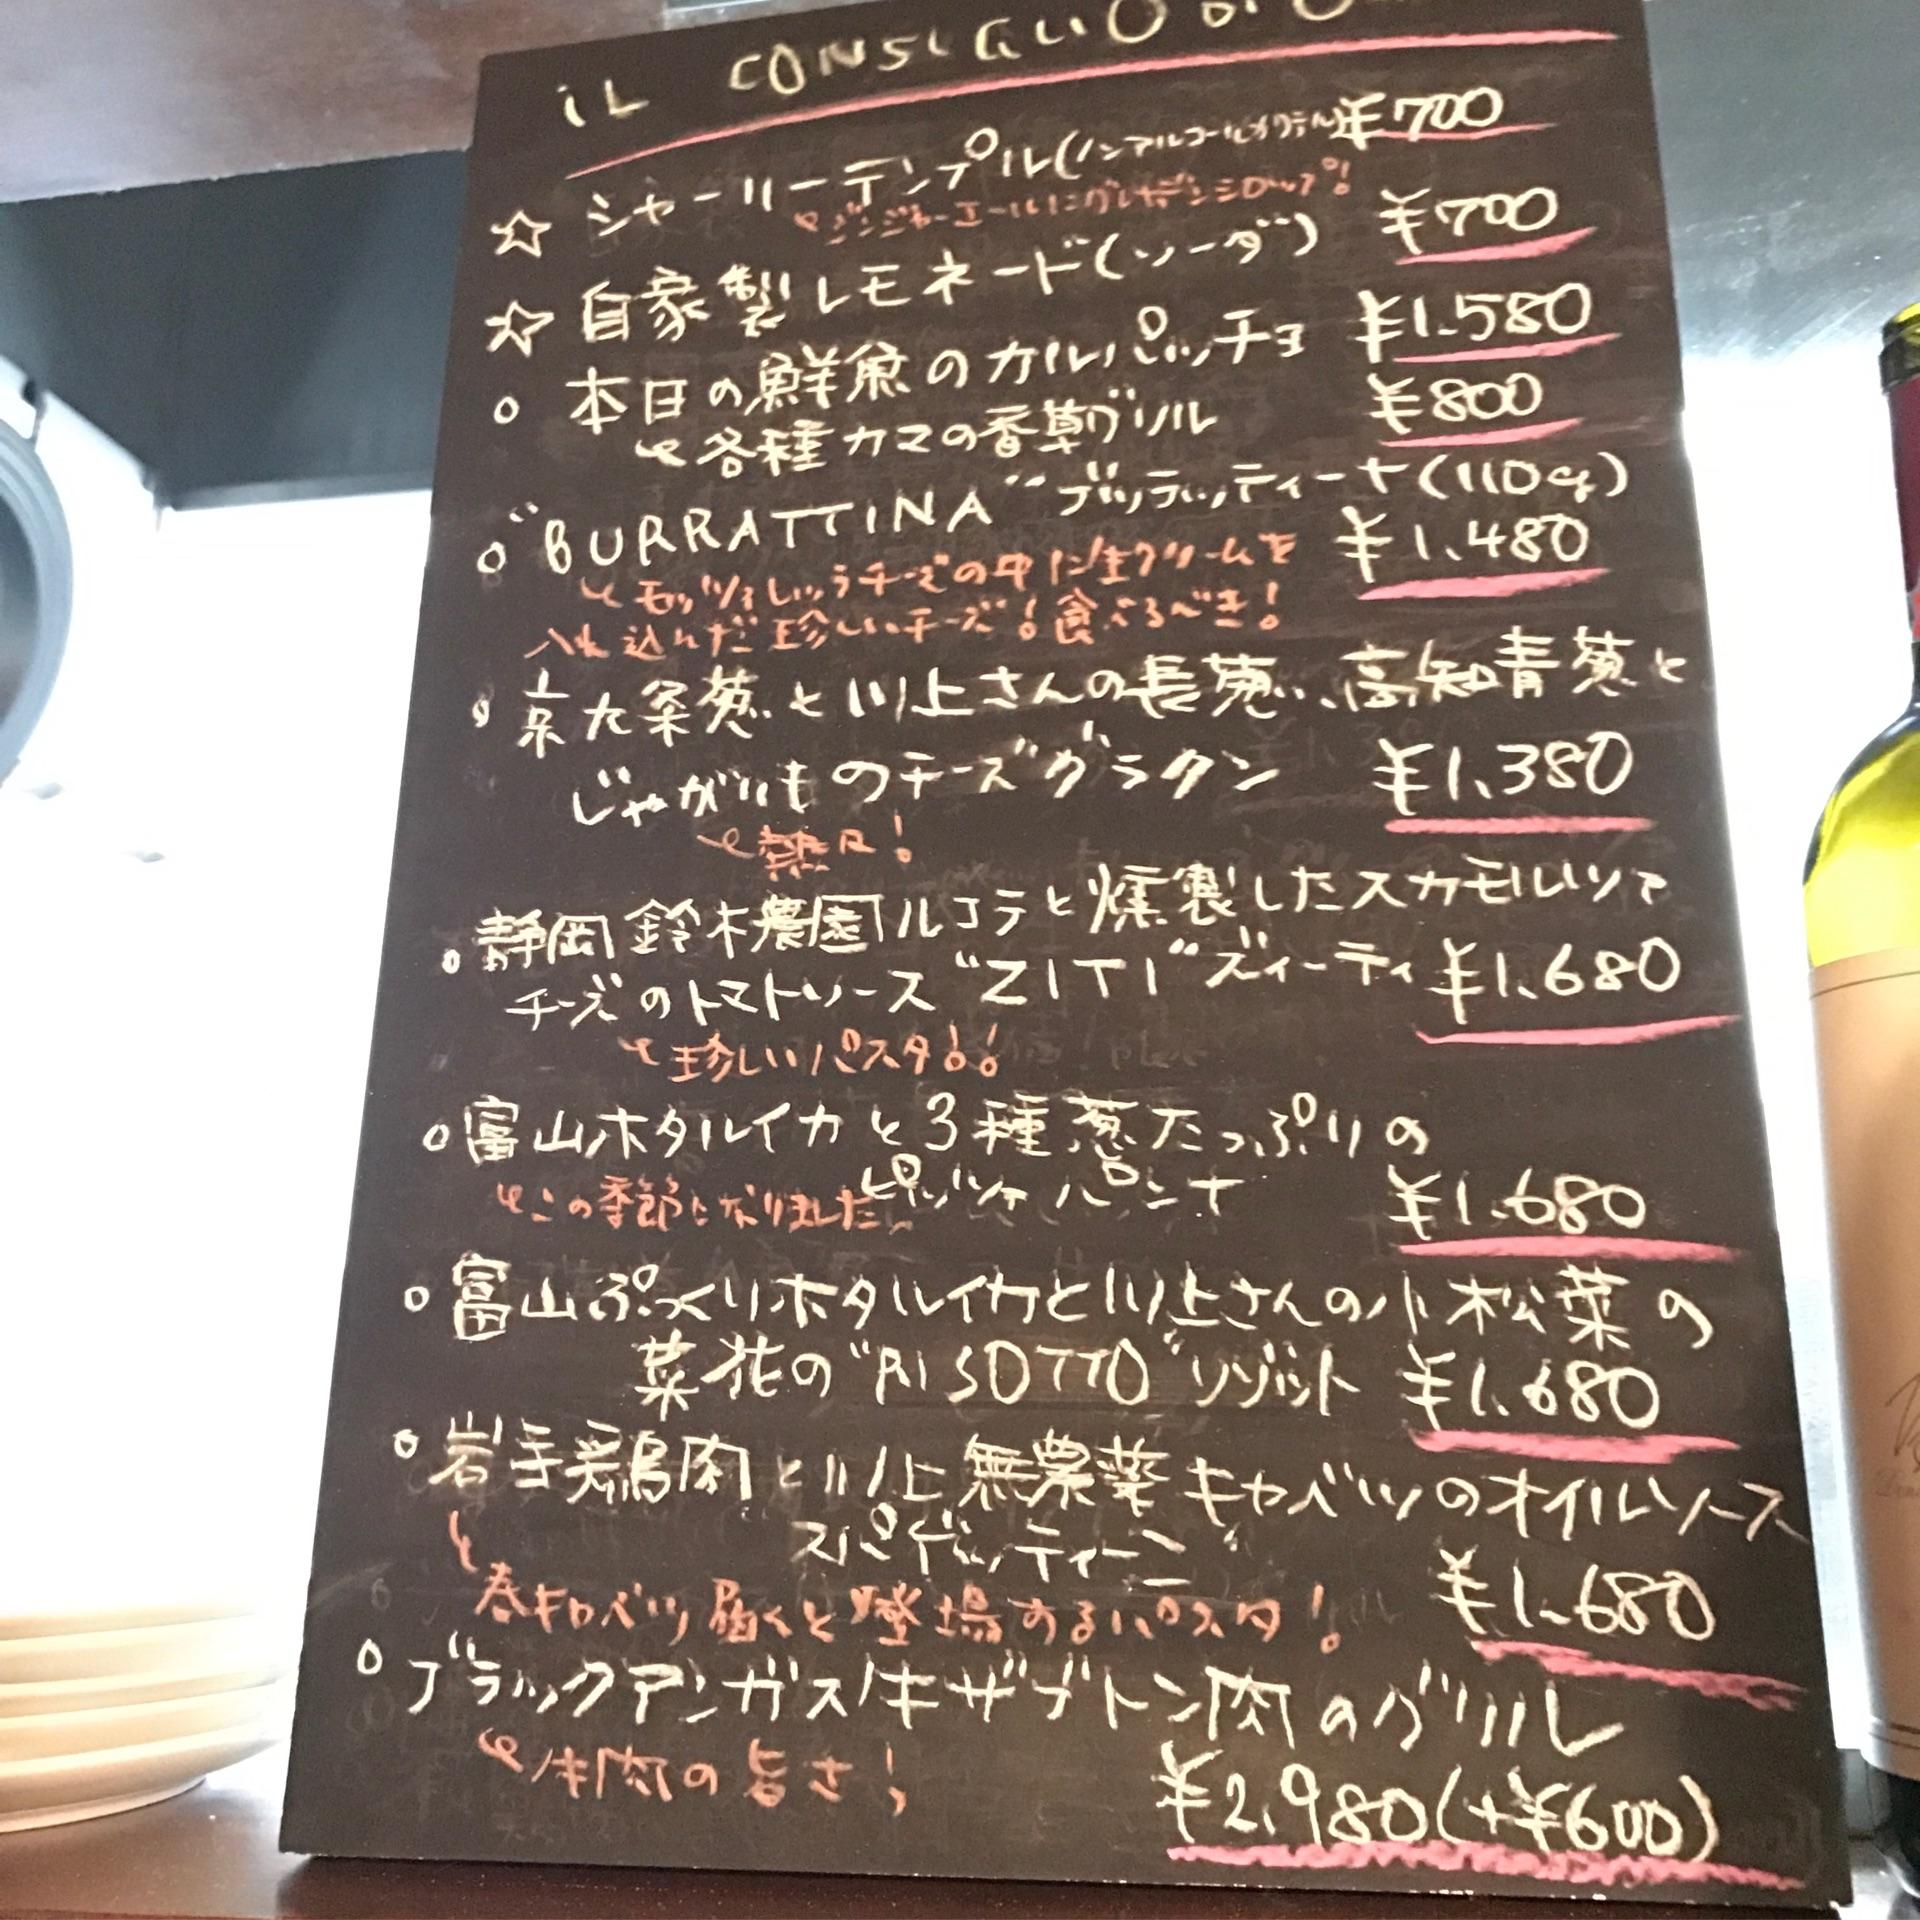 iL CONSiGLiO Di
☆ シャーリーテンプル(ノンアルコールカクテル) ¥700
ジンジャーエールにグレナデンシロップ!
☆ 自家製レモネード(ソーダ) ¥700
○ 本日の鮮魚のカルパッチョ ¥1.580
各種カマの香草グリル ¥800
○ "BURRATTINA" ブッラッティーナ(110g)
¥1.480
モッツァレッラチーズの中に生クリームを
入れ込んだ珍しいチーズ!食べるべき!
○ 京九条葱と川上さんの長葱、高知青葱と
じゃがいものチーズグラタン ¥1.380
熱々!
○ 静岡鈴木農園ルコラと燻製したスカモルツァ
チーズのトマトソース "ZITI" ズィーティ ¥1.680
珍しいパスタ!!
○ 富山ホタルイカと3種葱たっぷりの
ピッツァパンナ ¥1.680
この季節になりました
○ 富山ぷっくりホタルイカと川上さんの小松菜の
菜花の "RISOTTO" リゾット ¥1.680
○ 岩手鶏肉と川上無農薬キャベツのオイルソース
"スパゲッティーニ" ¥1.680
春キャベツ届くと登場するパスタ!
○ ブラックアンガス牛ザブトン肉のグリル
牛肉の旨さ!
¥2.980(+¥600)